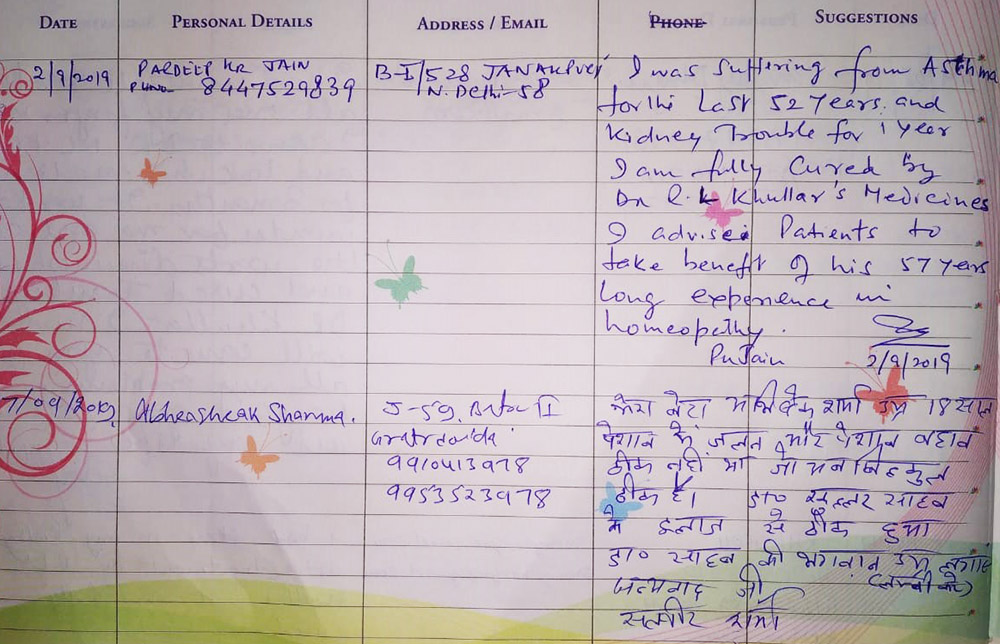 DATE PERSONAL DETAILS ADDRESS / EMAIL PHONE SUGGESTIONS
2/9/2019
PARDEEP KR JAIN
PHNO 8447529839
B-I/528 JANAKPURI
N. Delhi-58
I was suffering from Asthma
for the Last 52 Years. and
Kidney Trouble for 1 year
I am fully Cured by
Dr R.K Khullar's Medicines
I advise Patients to
take benefit of his 57 years
long experience in
homeopathy.
PKJain 2/9/2019
7/09/2019
Abheasheak Sharma.
J-59, II
9910413978
9953523978
मेरा बेटा अभिषेक शर्मा उम्र 18 साल
पेशाब में जलन और पेशाब
ठीक नहीं था जो अब बिल्कुल
ठीक है। डा० खुल्लर साहब
के इलाज से ठीक हुआ
डा० साहब की भगवान उम्र
(लम्बी करे)
धन्यवाद जी
शर्मा